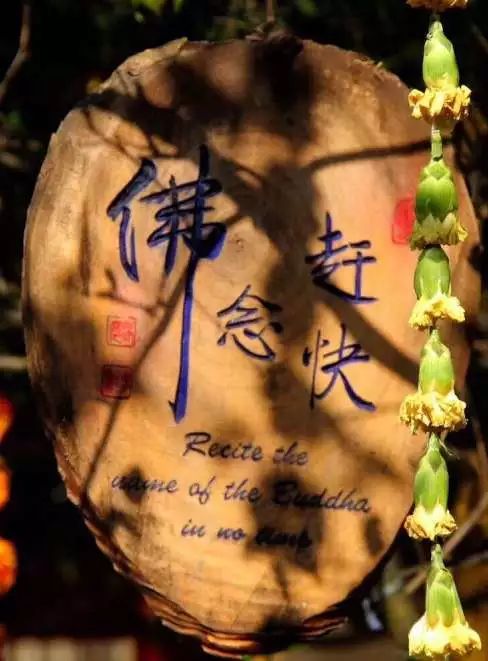 赶快
念
佛
Recite the
name of the Buddha
in no time